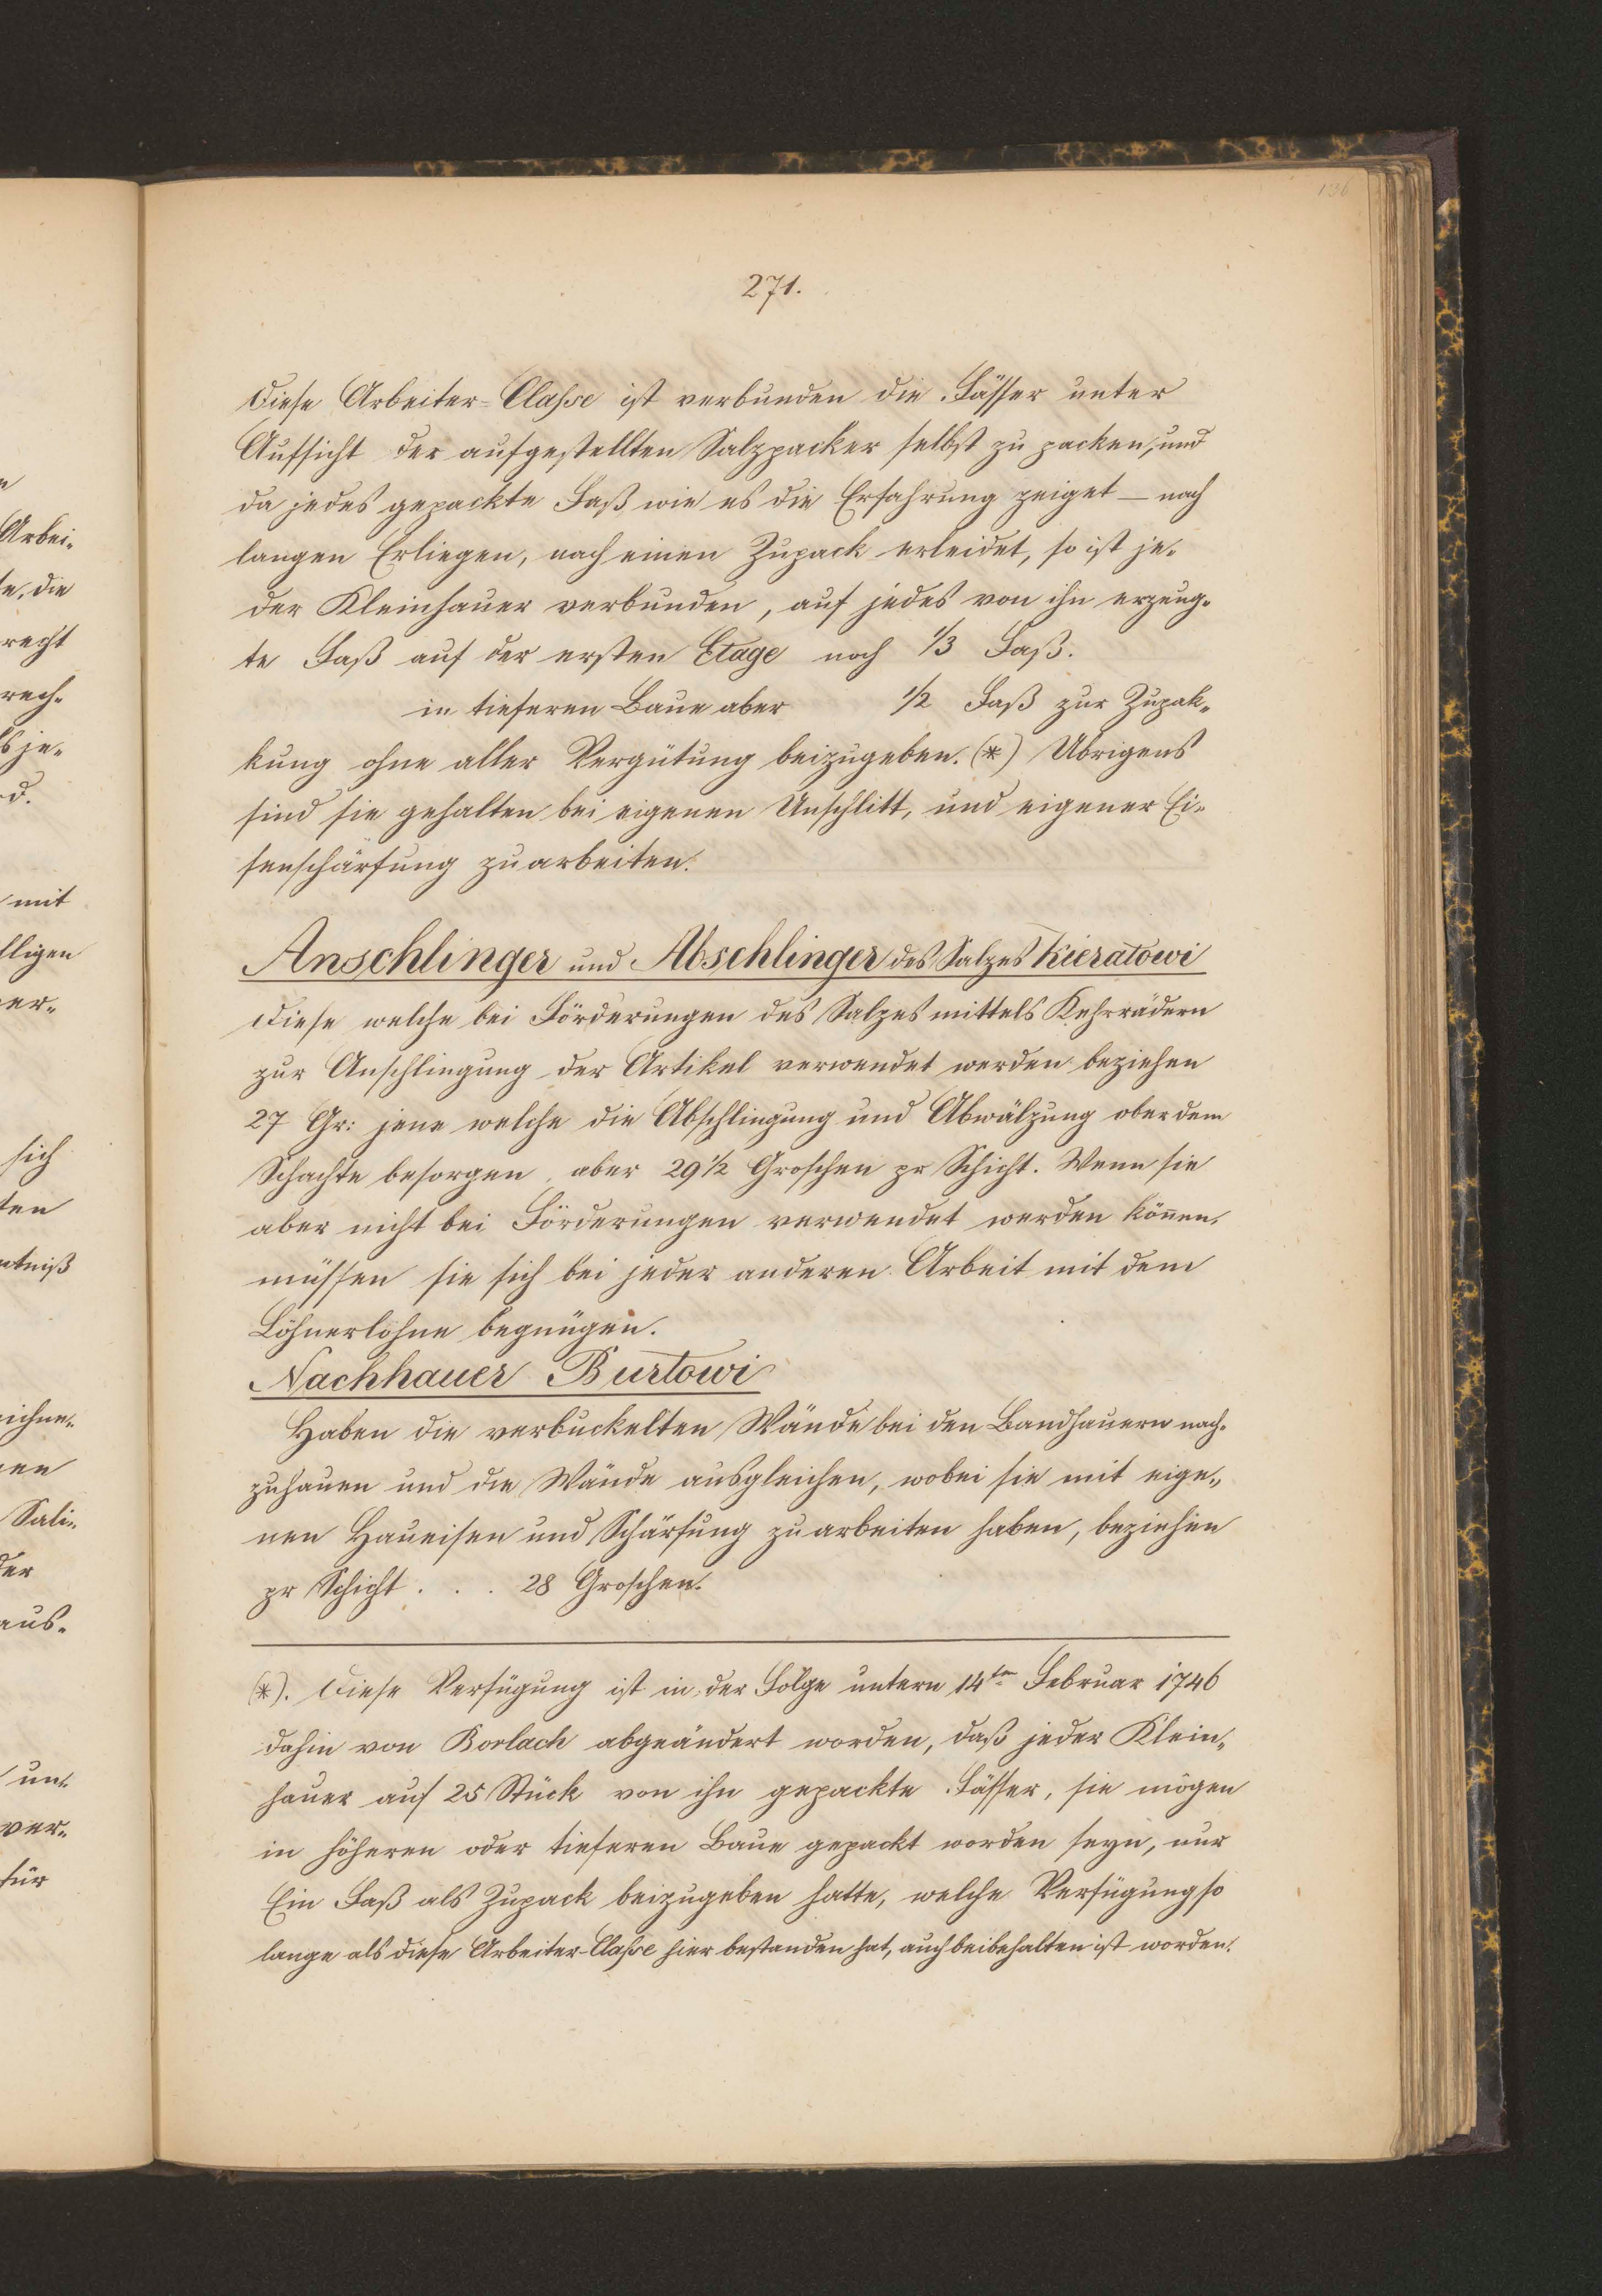 136
271.
Diese Arbeiter-Classe ist verbunden die Fässer unter
Aufsicht der aufgestellten Salzpacker selbst zu packen, und
da jedes gepackte Faß wie es die Erfahrung zeiget — nach
langen Erliegen, noch einen Zupack erleidet, so ist je-
der Kleinhauer verbunden, auf jedes von ihn erzeug-
te Faß auf der ersten Etage noch 1/3 Faß.
in tieferen Baue aber 1/2 Faß zur Zupak-
kung ohne aller Vergütung beizugeben. (*) Übrigens
sind sie gehalten bei eigenen Unschlitt, und eigener Ei-
senschärfung zu arbeiten.
Anschlinger und Abschlinger des Salzes Kieratowi
Diese welche bei Förderungen des Salzes mittels Kehrrädern
zur Anschlingung der Artikel verwendet werden beziehen
27 Gr: jene welche die Abschlingung und Abwälzung ober dem
Schachte besorgen, aber 29 1/2 Groschen pr Schicht. Wenn sie
aber nicht bei Förderungen verwendet werden könen,
müssen sie sich bei jeder anderen Arbeit mit dem
Löhnerlohne begnügen.
Nachhauer Burtowi
Haben die verbuckelten Wände bei den Bandhauern nach-
zuhauen und die Wände ausgleichen, wobei sie mit eige-
nen Haueisen und Schärfung zu arbeiten haben, beziehen
pr Schicht . . . 28 Groschen.
(*). Diese Verfügung ist in der Folge untern 14ten Februar 1746
dahin von Borlach abgeändert worden, daß jeder Klein-
hauer auf 25 Stück von ihn gepackte Fässer, sie mögen
in höheren oder tieferen Baue gepackt worden seyn, nur
Ein Faß als Zupack beizugeben hatte, welche Verfügung so
lange als diese Arbeiter-Classe hier bestanden hat, auch beibehalten ist worden.